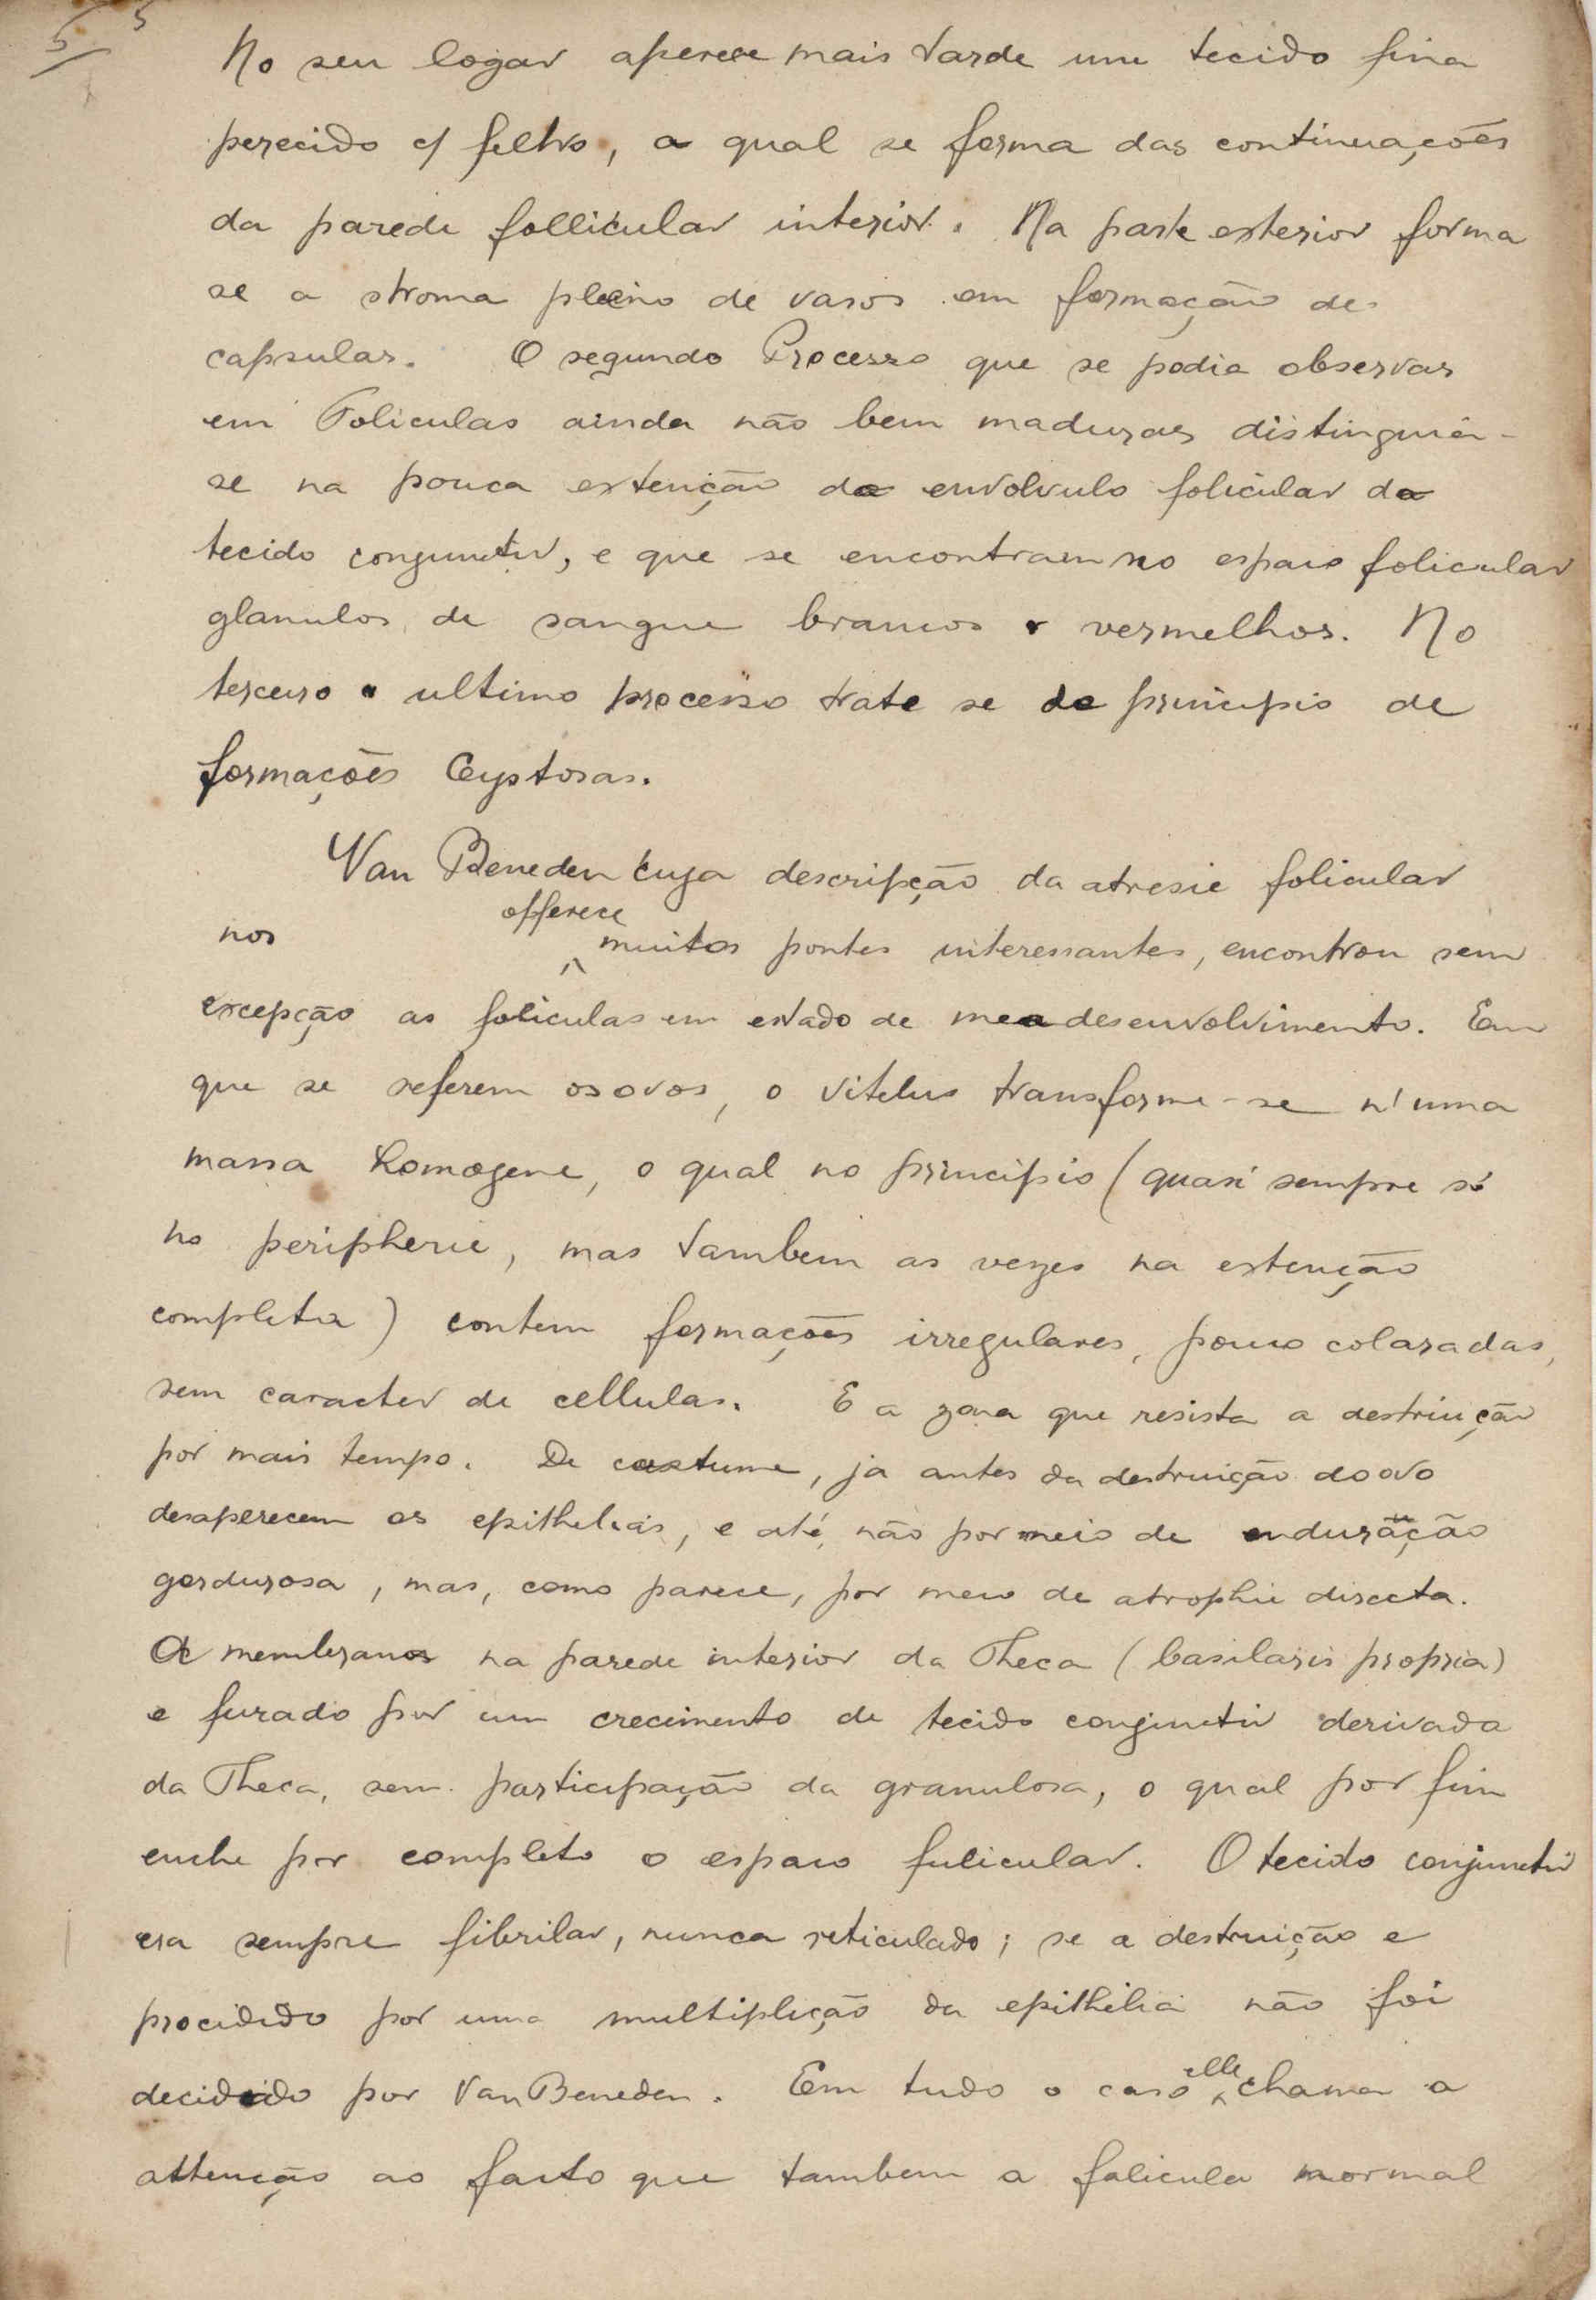 5 5
No seu logar aperece mais tarde um tecido fina
perecido c/ feltro, a qual se forma das continuações
da parede follicular interior. Na parte exterior forma
se a stroma pleino de vasos em formação de
capsulas. O segundo Processo que se podia observar
em Foliculas ainda não bem maduras distinguia-
se na pouca extenção do envolvulo folicular do
tecido conjunctiv, e que se encontram no espaco folicular
glanulos de sangue brancos e vermelhos. No
terceiro e ultimo processo trate se de principio de
formações Cystosas.
Van Beneden cuja descripção da atresie folicular
nos offerece muitos pontes interessantes, encontrou sem
excepção as foliculas em estado de meo desenvolvimento. Em
que se referem os ovos, o vitelus transforme-se n'uma
massa homogene, o qual no principio (quasi sempre só
no peripherie, mas tambem as vezes na extenção
completa) contem formações irregulares, pouco colaradas,
sem caracter de cellulas. E a zona que resista a destruição
por mais tempo. De costume, ja antes da destruição do ovo
desaperecem os epithelias, e até não por meio de enduração
gordurosa, mas, como parece, por meio de atrophie directa.
A membrana na parede interior da Theca (basilaris propria)
e furado por um crecimento de tecido conjunctiv derivada
da Theca, sem participação da granulosa, o qual por fim
enche por completo o espaco fulicular. O tecido conjunctiv
era sempre fibrilar, nunca reticulado; se a destruição e
procidido por uma multiplicção da epithelia não foi
decidido por Van Beneden. Em tudo o caso elle chama a
attenção ao facto que tambem a folicula normal